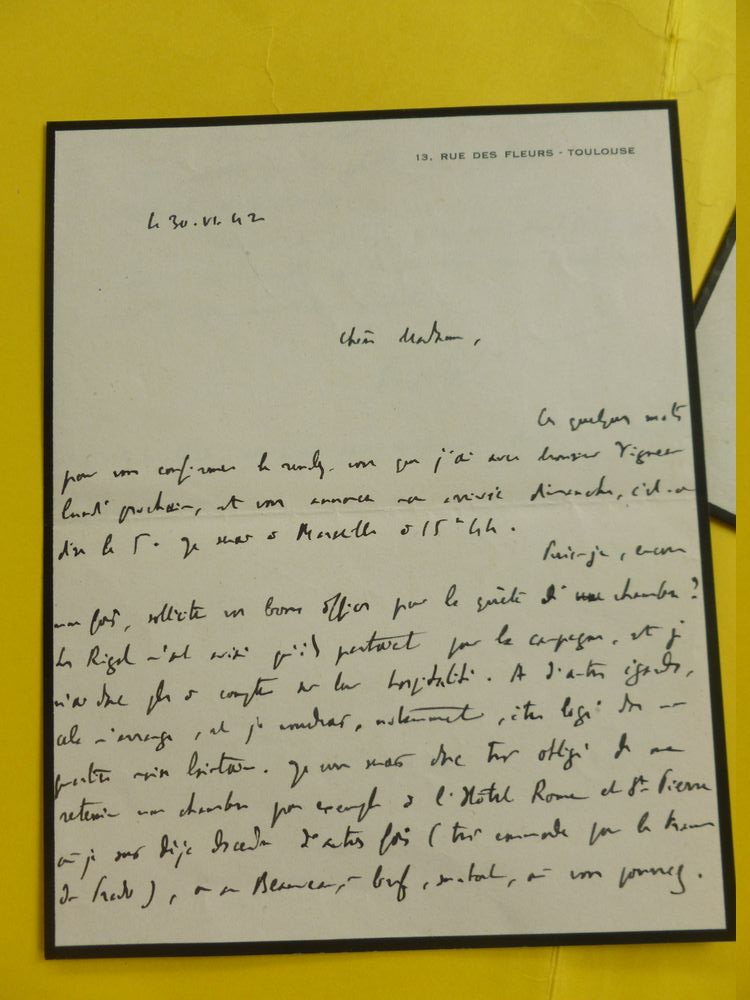 13, RUE DES FLEURS - TOULOUSE
le 30.VI.42
Chère Madame,
Ces quelques mots
pour vous confirmer le rendez-vous que j'ai avec Monsieur Vigneau
lundi prochain, et vous annoncer mon arrivée dimanche, c'est-à-
dire le 5. Je serai à Marseille à 15h44.
Puis-je, encore
une fois, solliciter vos bons offices pour la quête d'une chambre?
Les Rigal m'ont avisé qu'ils partaient pour la campagne, et je
n'ai donc plus à compter sur leur hospitalité. A d'autres égards,
cela m'arrange, et je voudrais, notamment, être logé dans un
quartier moins lointain. Je vous serais donc très obligé de me
retenir une chambre par exemple à l'Hôtel Rome et St Pierre
où je suis déjà descendu d'autres fois (très commode pour le tram
du Prado), ou au Beauveau, - bref, surtout, où vous pourrez.